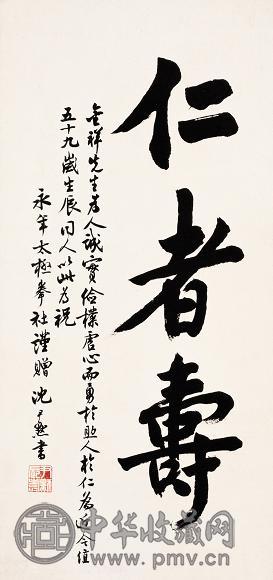 仁者壽
金祥先生為人誠實儉樸虛心而勇於助人於仁為近今值
五十九歲生辰同人以此為祝
永年太極拳社謹贈 沈尹默書
中华收藏网
www.pmv.cn